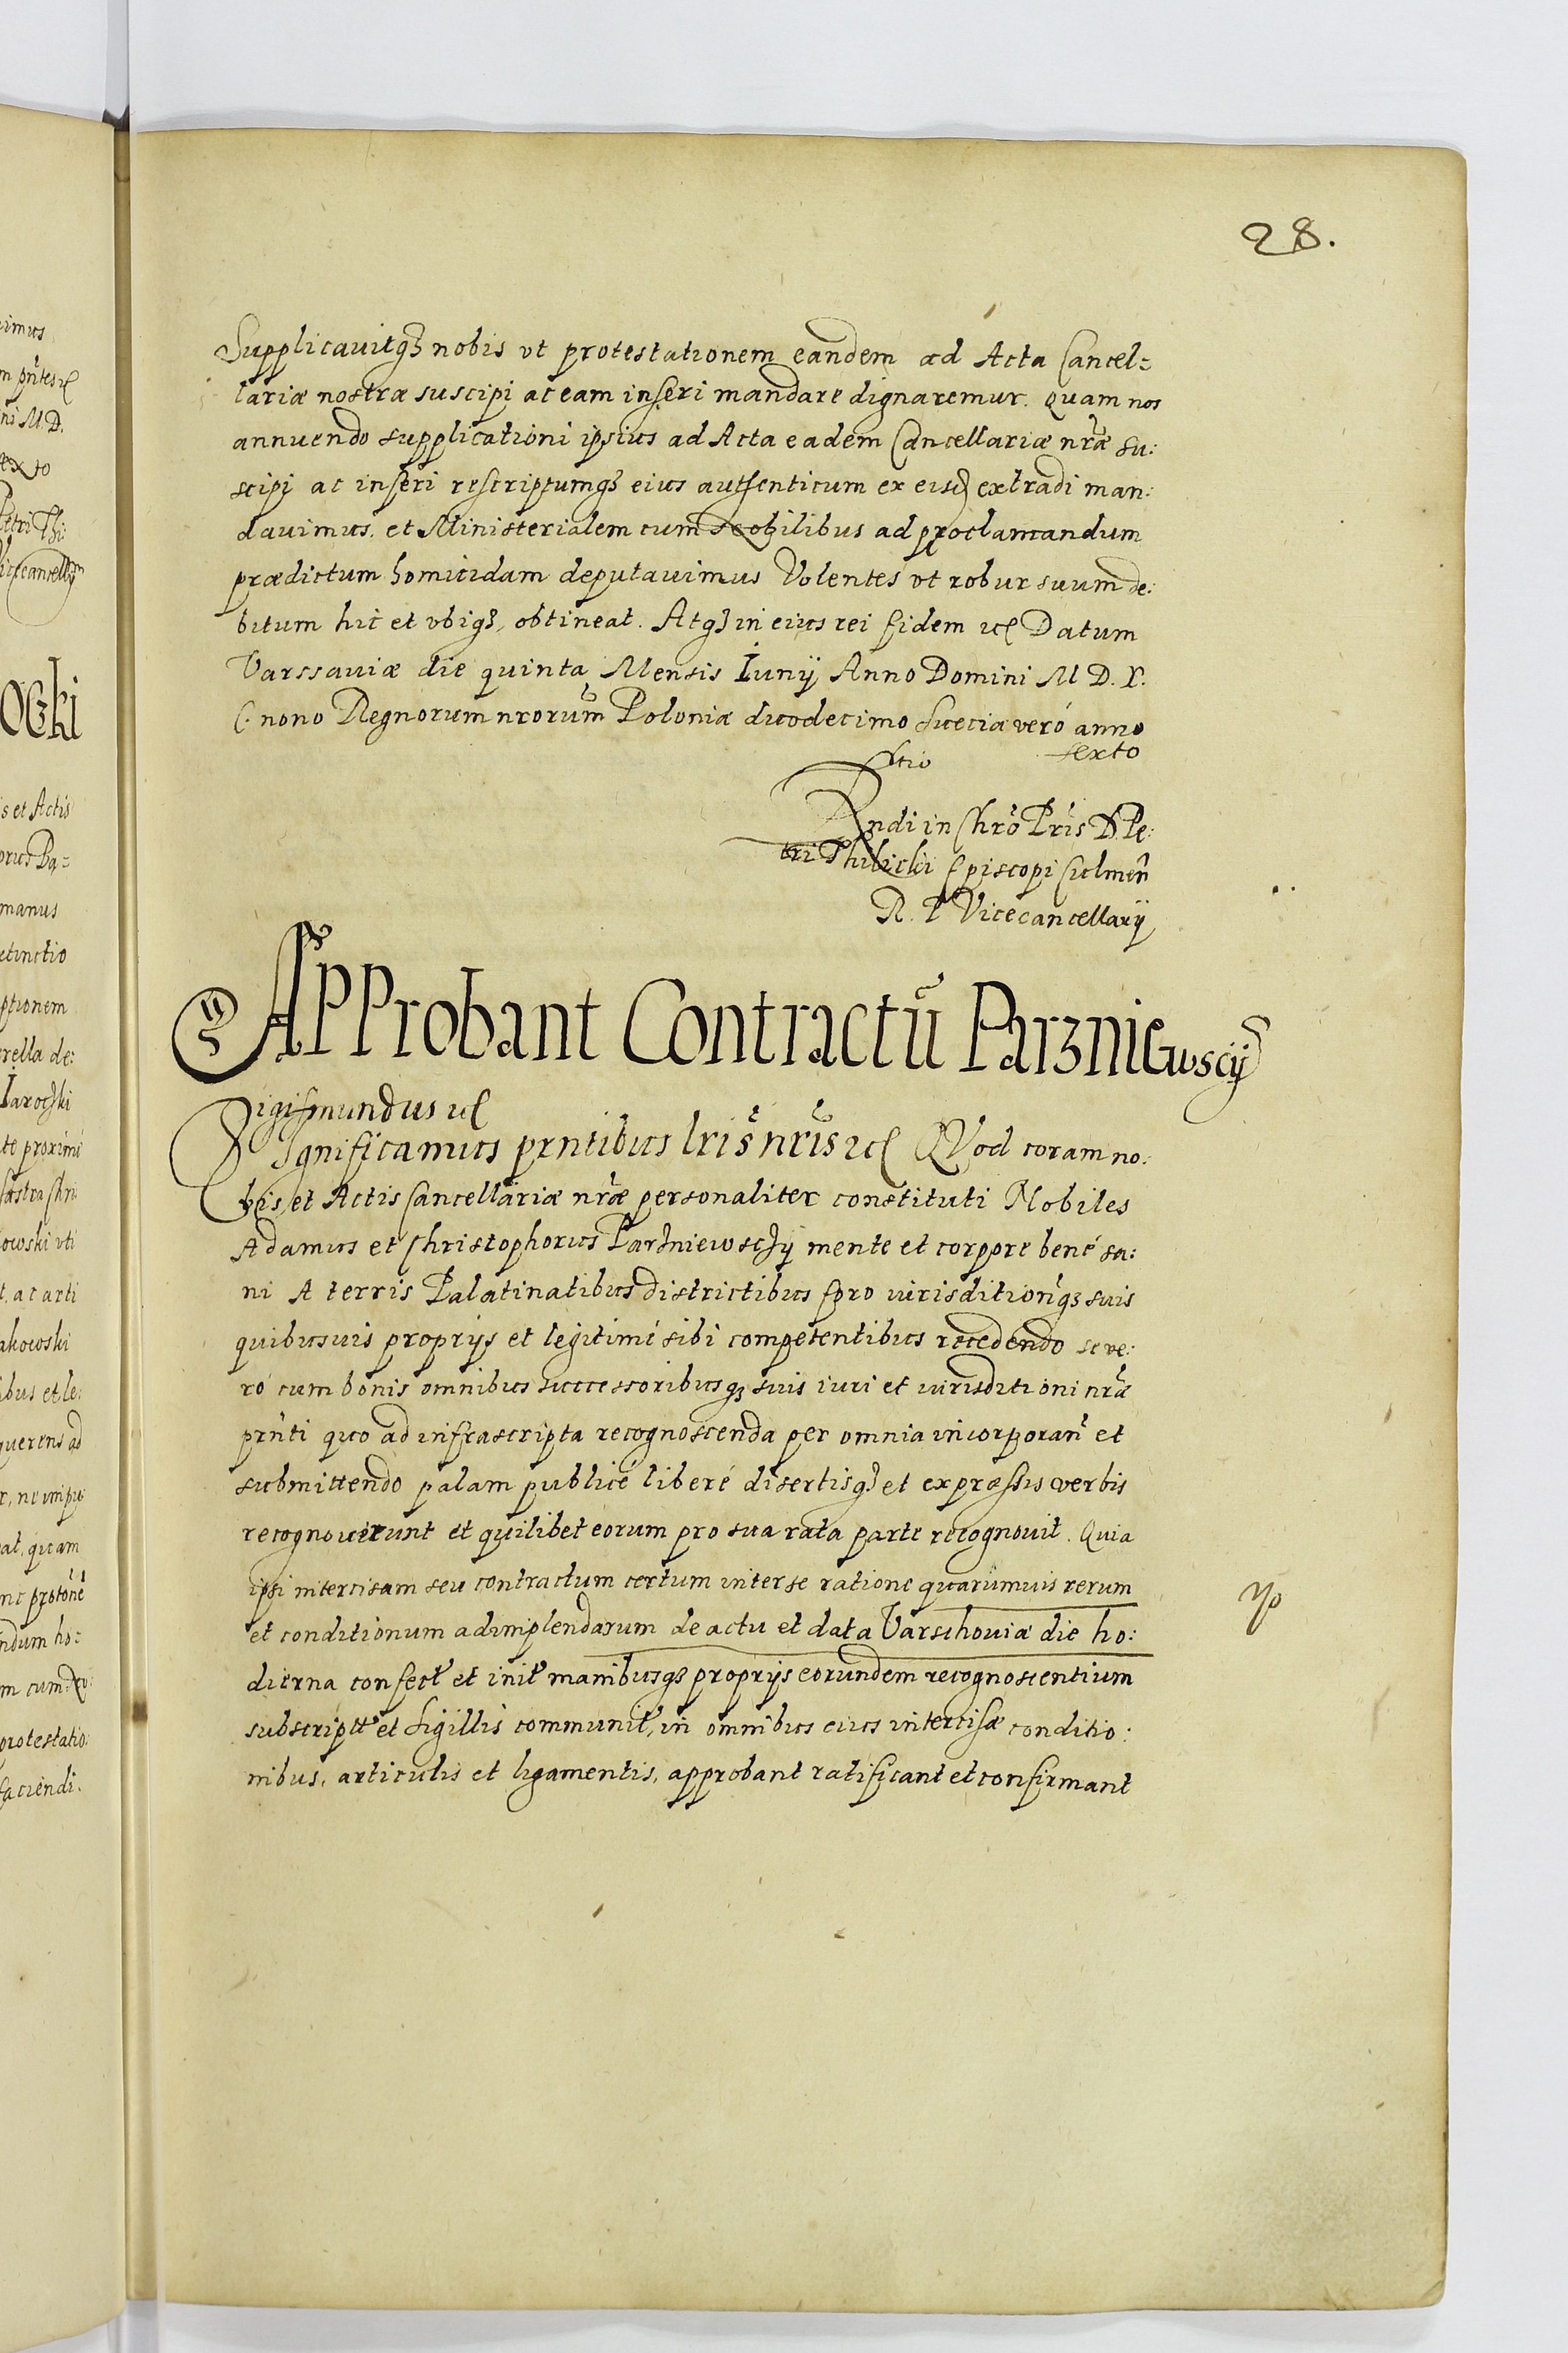 28.
Supplicauitq3 nobis vt protestationem eandem ad Acta Cancel=
lariæ nostræ suscipi ac eam inseri mandare dignaremur. Quam nos
annuendo supplicationi ipsius ad Acta eadem Cancellariæ nræ su:
scipi ac inseri rescriptumq3 eius autsenticum ex eisd extradi man:
dauimus. et Ministerialem cum Nobilibus ad proclamandum
prædictum homicidam deputauimus Volentes vt robur suum de:
bitum hic et vbiq3, obtineat. Atq3 in eius rei fidem etc Datum
Varssauiæ die quinta Mensis Iunij Anno Domini M D. X.
C. nono Regnorum nrorum Poloniæ duodecimo Sueciæ veró anno
sexto
Rndi in Chro Pris D. Pe:
tri Thilicki Episcopi Culmen
R. P Vicecancellarij
APProbant Contractũ Parzniewscij
Sigismundus etc
Significamus prntibus lris nris etc QVod coram no:
bis, et Actis Cancellariæ nræ personaliter constituti Nobiles
Adamus et Christophorus Parzniewsczÿ mente et corpore bené sa:
ni A terris Palatinatibus districtibus foro iurisditionq3 suis
quibusuis proprijs et legitimé sibi competentibus recedendo se ve:
ró cum bonis omnibus successoribusq3 suis iuri et iurisditioni nræ
prnti quo ad infrascripta recognoscenda per omnia incorporan et
submittendo palam publicé liberé disertisq3 et expræssis verbis
recognouerunt et quilibet eorum pro sua rata parte recognouit. Quia
ipsi intercisam seu contractum certum inter se ratione quarumuis rerum
et conditionum adimplendarum de actu et data Varschouiæ die ho:
dierna confect et init manibusq3 proprijs eorundem recognoscentium
subscript et sigillis communit, in omnibus eius intercisæ conditio:
nibus, articulis et ligamentis, approbant ratificant et confirmant